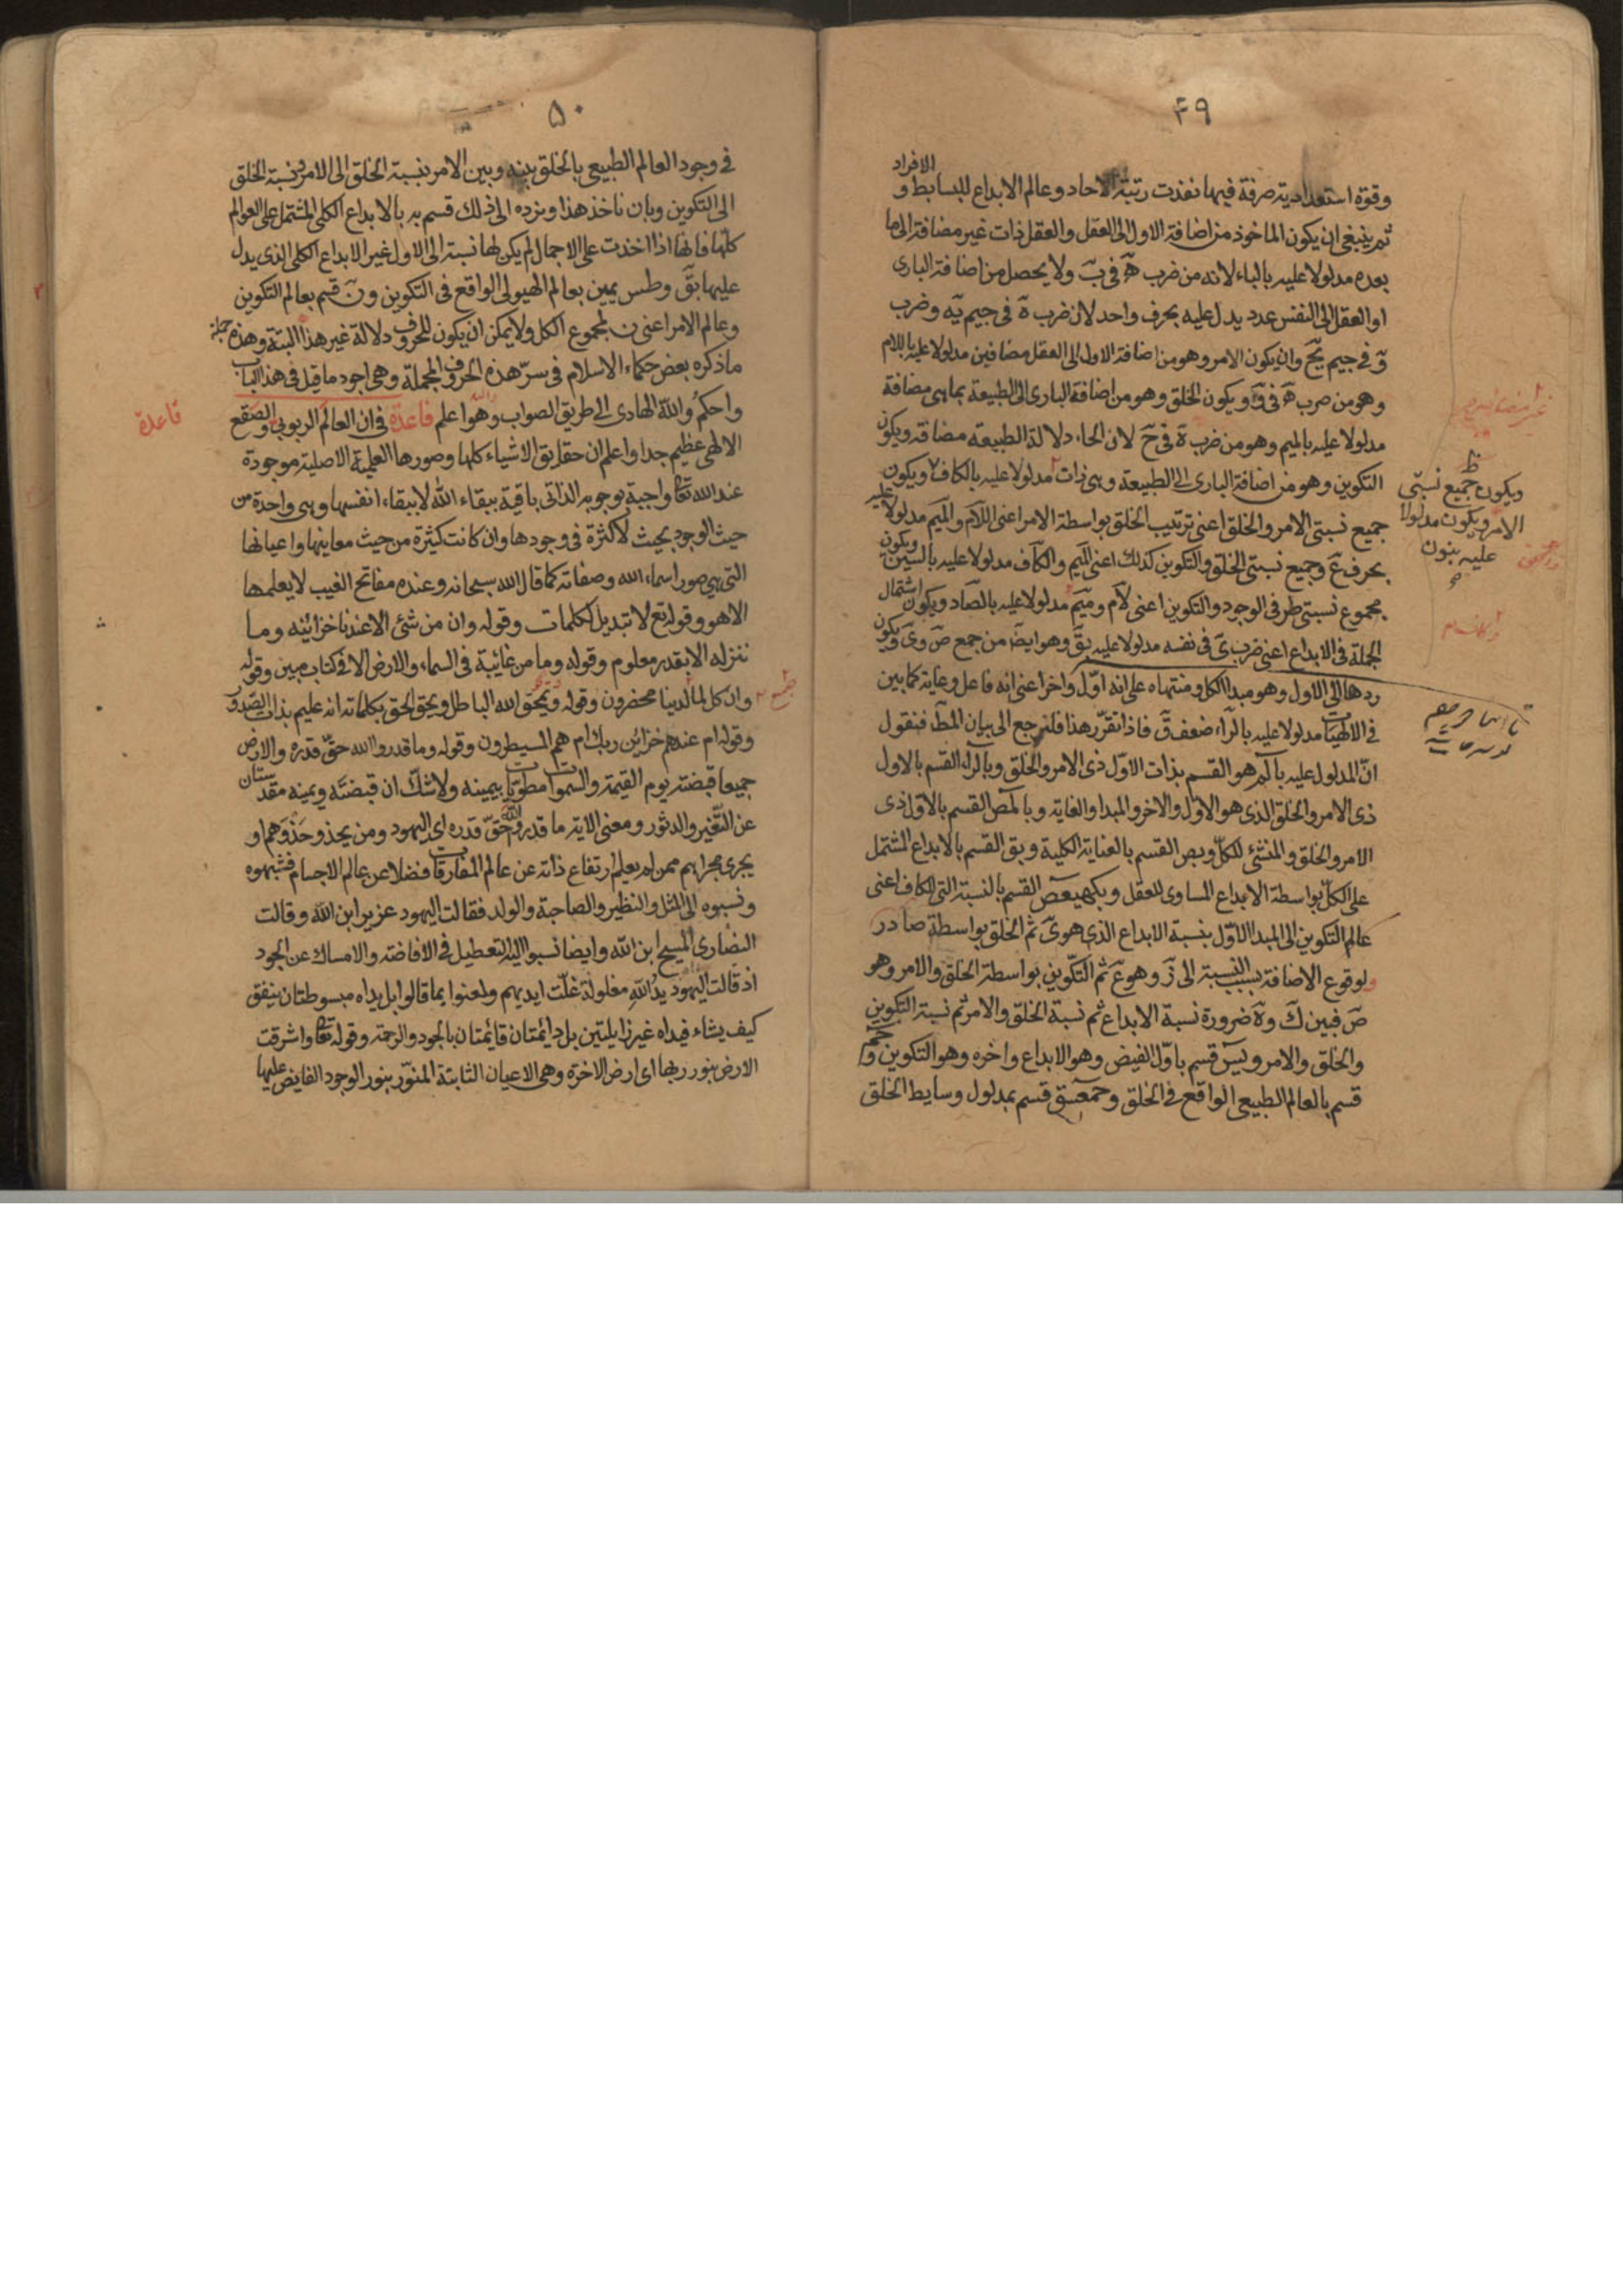 ۴۹
الافراد
وقوة استعدادية صرفة فيها نفذت رتبة الاحاد وعالم الابداع للبسايط و
ثم ينبغى ان يكون الماخوذ من اضافة الاول الى العقل والعقل ذات غير مضافة الى ما
بعده مدلولا عليه بالباء لانه من ضرب هٓ فى بٓ ولا يحصل من اضافة البارى
او العقل الى النفس عدد يدل عليه بحرف واحد لان ضرب هٓ فى جيم يٓه وضرب
وٓ فى جيم يٓح وان يكون الامر وهو من اضافة الاول الى العقل مضافين مدلولا عليه باللام
وهو من ضرب هٓ فى وٓ و يكون الخلق وهو من اضافة البارى الى الطبيعة بما هى مضافة
مدلولا عليه بالميم وهو من ضرب هٓ فى حٓ لان الحاء دلالة الطبيعه مضافة ويكون
التكوين وهو من اضافة البارى الى الطبيعة وهى ذات مدلولا عليه بالكاف ويكون
جميع نسبتى الامر والخلق اعنى ترتيب الخلق بواسطة الامر اعنى اللام والميم مدلولا عليه
بحرف عٓ وجميع نسبتى الخلق والتكوين كذلك اعنى الميم والكاف مدلولا عليه بالسين ويكون
مجموع نسبتى طرفى الوجود والتكوين اعنى لام وميم مدلولا عليه بالصاد ويكون اشتمال
الجملة فى الابداع اعنى ضرب ىٓ فى نفسه مدلولا عليه بقٓ وهو ايضا من جمع صٓ وىٓ ويكون
ردها الى الاول وهو مبدا الكل ومنتهاه على انه اول واخر اعنى انه فاعل وغاية كما بين
فى الالهيات مدلولا عليه بالراء ضعف قٓ فاذا تقرر هذا فلنرجع الى بيان المط فنقول
ان المدلول عليه بالٓم هو القسم بذات الاول ذى الامر والخلق وبالٓر القسم بالاول
ذى الامر والخلق الذى هو الاول والاخر والمبدا والغاية وبالمص القسم بالاول ذى
الامر والخلق والمنشئ للكل وبص القسم بالعناية الكلية وبق القسم بالابداع المشتمل
على الكل بواسطة الابداع المساوى للعقل وبكهيعص القسم بالنسبة التى للكاف اعنى
عالم التكوين الى المبدا الاول بنسبة الابداع الذى هو ىٓ ثم الخلق بواسطة صادر
ولوقوع الاضافة بسبب النسبة الى وهو عٓ ثم التكوين بواسطة الخلق والامر وهو
صٓ فبين كٓ وهٓ ضرورة نسبة الابداع ثم نسبة الخلق والامر ثم نسبة التكوين
والخلق والامر ويسٓ قسم باول الفيض وهو الابداع واخره وهو التكوين وحٓم
قسم بالعالم الطبيعى الواقع فى الخلق وحمعسق قسم بمدلول وسايط الخلق
ظ
ويكون جميع نسبتى
الامر ويكون مدلولا
عليه بنون
۵۰
فى وجود العالم الطبيعى بالخلق بينه وبين الامر بنسبة الخلق الى الامر ونسبة الخلق
الى التكوين وبان ناخذ هذا ونرده الى ذلك قسم به بالابداع الكلى المشتمل على العوالم
كلها فانها اذا اخذت على الاجمال لم يكن لها نسبة الى الاول غير الابداع الكلى الذى يدل
عليها بقٓ وطس يمين بعالم الهيولى الواقع فى التكوين ونٓ قسم بعالم التكوين
وعالم الامر اعنى ن لمجموع الكل ولا يمكن ان يكون للحروف دلالة غير هذا البتة وهذه جملة
ما ذكره بعض حكماء الاسلام فى سر هذه الحروف المجملة وهى اجود ما قيل فى هذا الباب
واحكم والله الهادى الى طريق الصواب وهو اعلم قاعدة فى ان العالم الربوبى والصقع
قاعدة
الالهى عظيم جدا واعلم ان حقايق الاشياء كلها وصورها العلمية الاصلية موجودة
عند الله تعالى واجبة بوجوبه الذاتى باقية ببقاء الله لا ببقاء انفسها وهى واحدة من
حيث الوجود بحيث لا كثرة فى وجودها وان كانت كثيرة من حيث معاينها واعيانها
التى هى صور اسماء الله وصفاته كما قال الله سبحانه وعنده مفاتح الغيب لا يعلمها
الا هو وقوله تع لا تبديل لكلمات وقوله وان من شئ الا عندنا خزائنه وما
ننزله الا بقدر معلوم وقوله وما من غائبة فى السماء والارض الا فى كتاب مبين وقوله
وان كل لما لدينا محضرون وقوله ويمحق الله الباطل ويحق الحق بكلماته انه عليم بذات الصدور
وقوله ام عندهم خزاين ربك ام هم المسيطرون وقوله وما قدروا الله حق قدره والارض
جميعا قبضته يوم القيمة والسموات مطويات بيمينه ولا شك ان قبضته ويمينه مقدستان
عن التغير والدثور ومعنى الاية ما قدروا الله حق قدره اى اليهود ومن يحذو حذوهم او
يجرى مجراهم ممن لم يعلم ارتفاع ذاته عن عالم المفارقات فضلا عن عالم الاجسام فشبهوه
ونسبوه الى المثل والنظير والصاحبة والولد فقالت اليهود عزير ابن الله وقالت
النصارى المسيح ابن الله وايضا نسبوا اليه التعطيل فى الافاضة والامساك عن الجود
اذ قالت اليهود يد الله مغلولة غلت ايديهم ولعنوا بما قالوا بل يداه مبسوطتان ينفق
كيف يشاء فيداه غير زايلتين بل دائمتان قائمتان بالجود والرحمة وقوله تعالى واشرقت
الارض بنور ربها اى ارض الاخرة وهى الاعيان الثابتة المنور بنور الوجود الفايض عليها